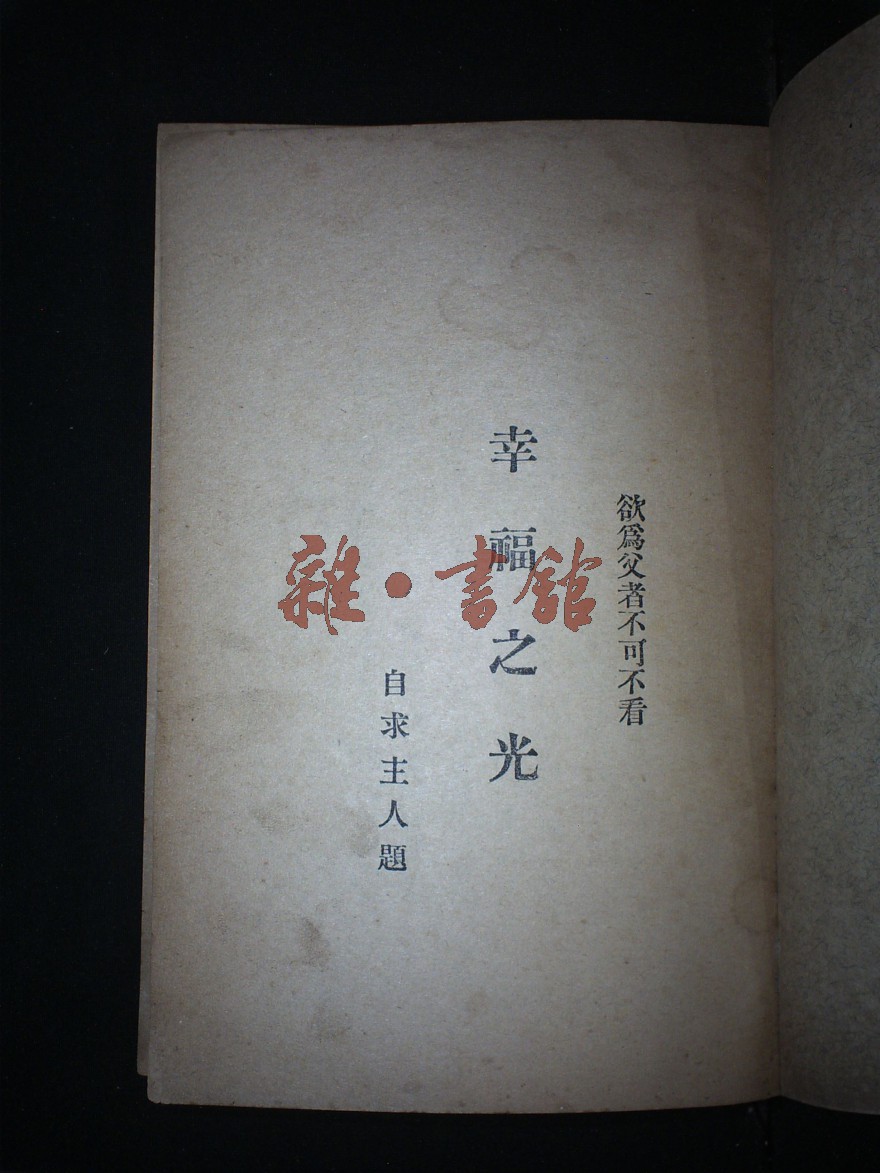 欲爲父者不可不看
幸福之光
自求主人題
雜·書館